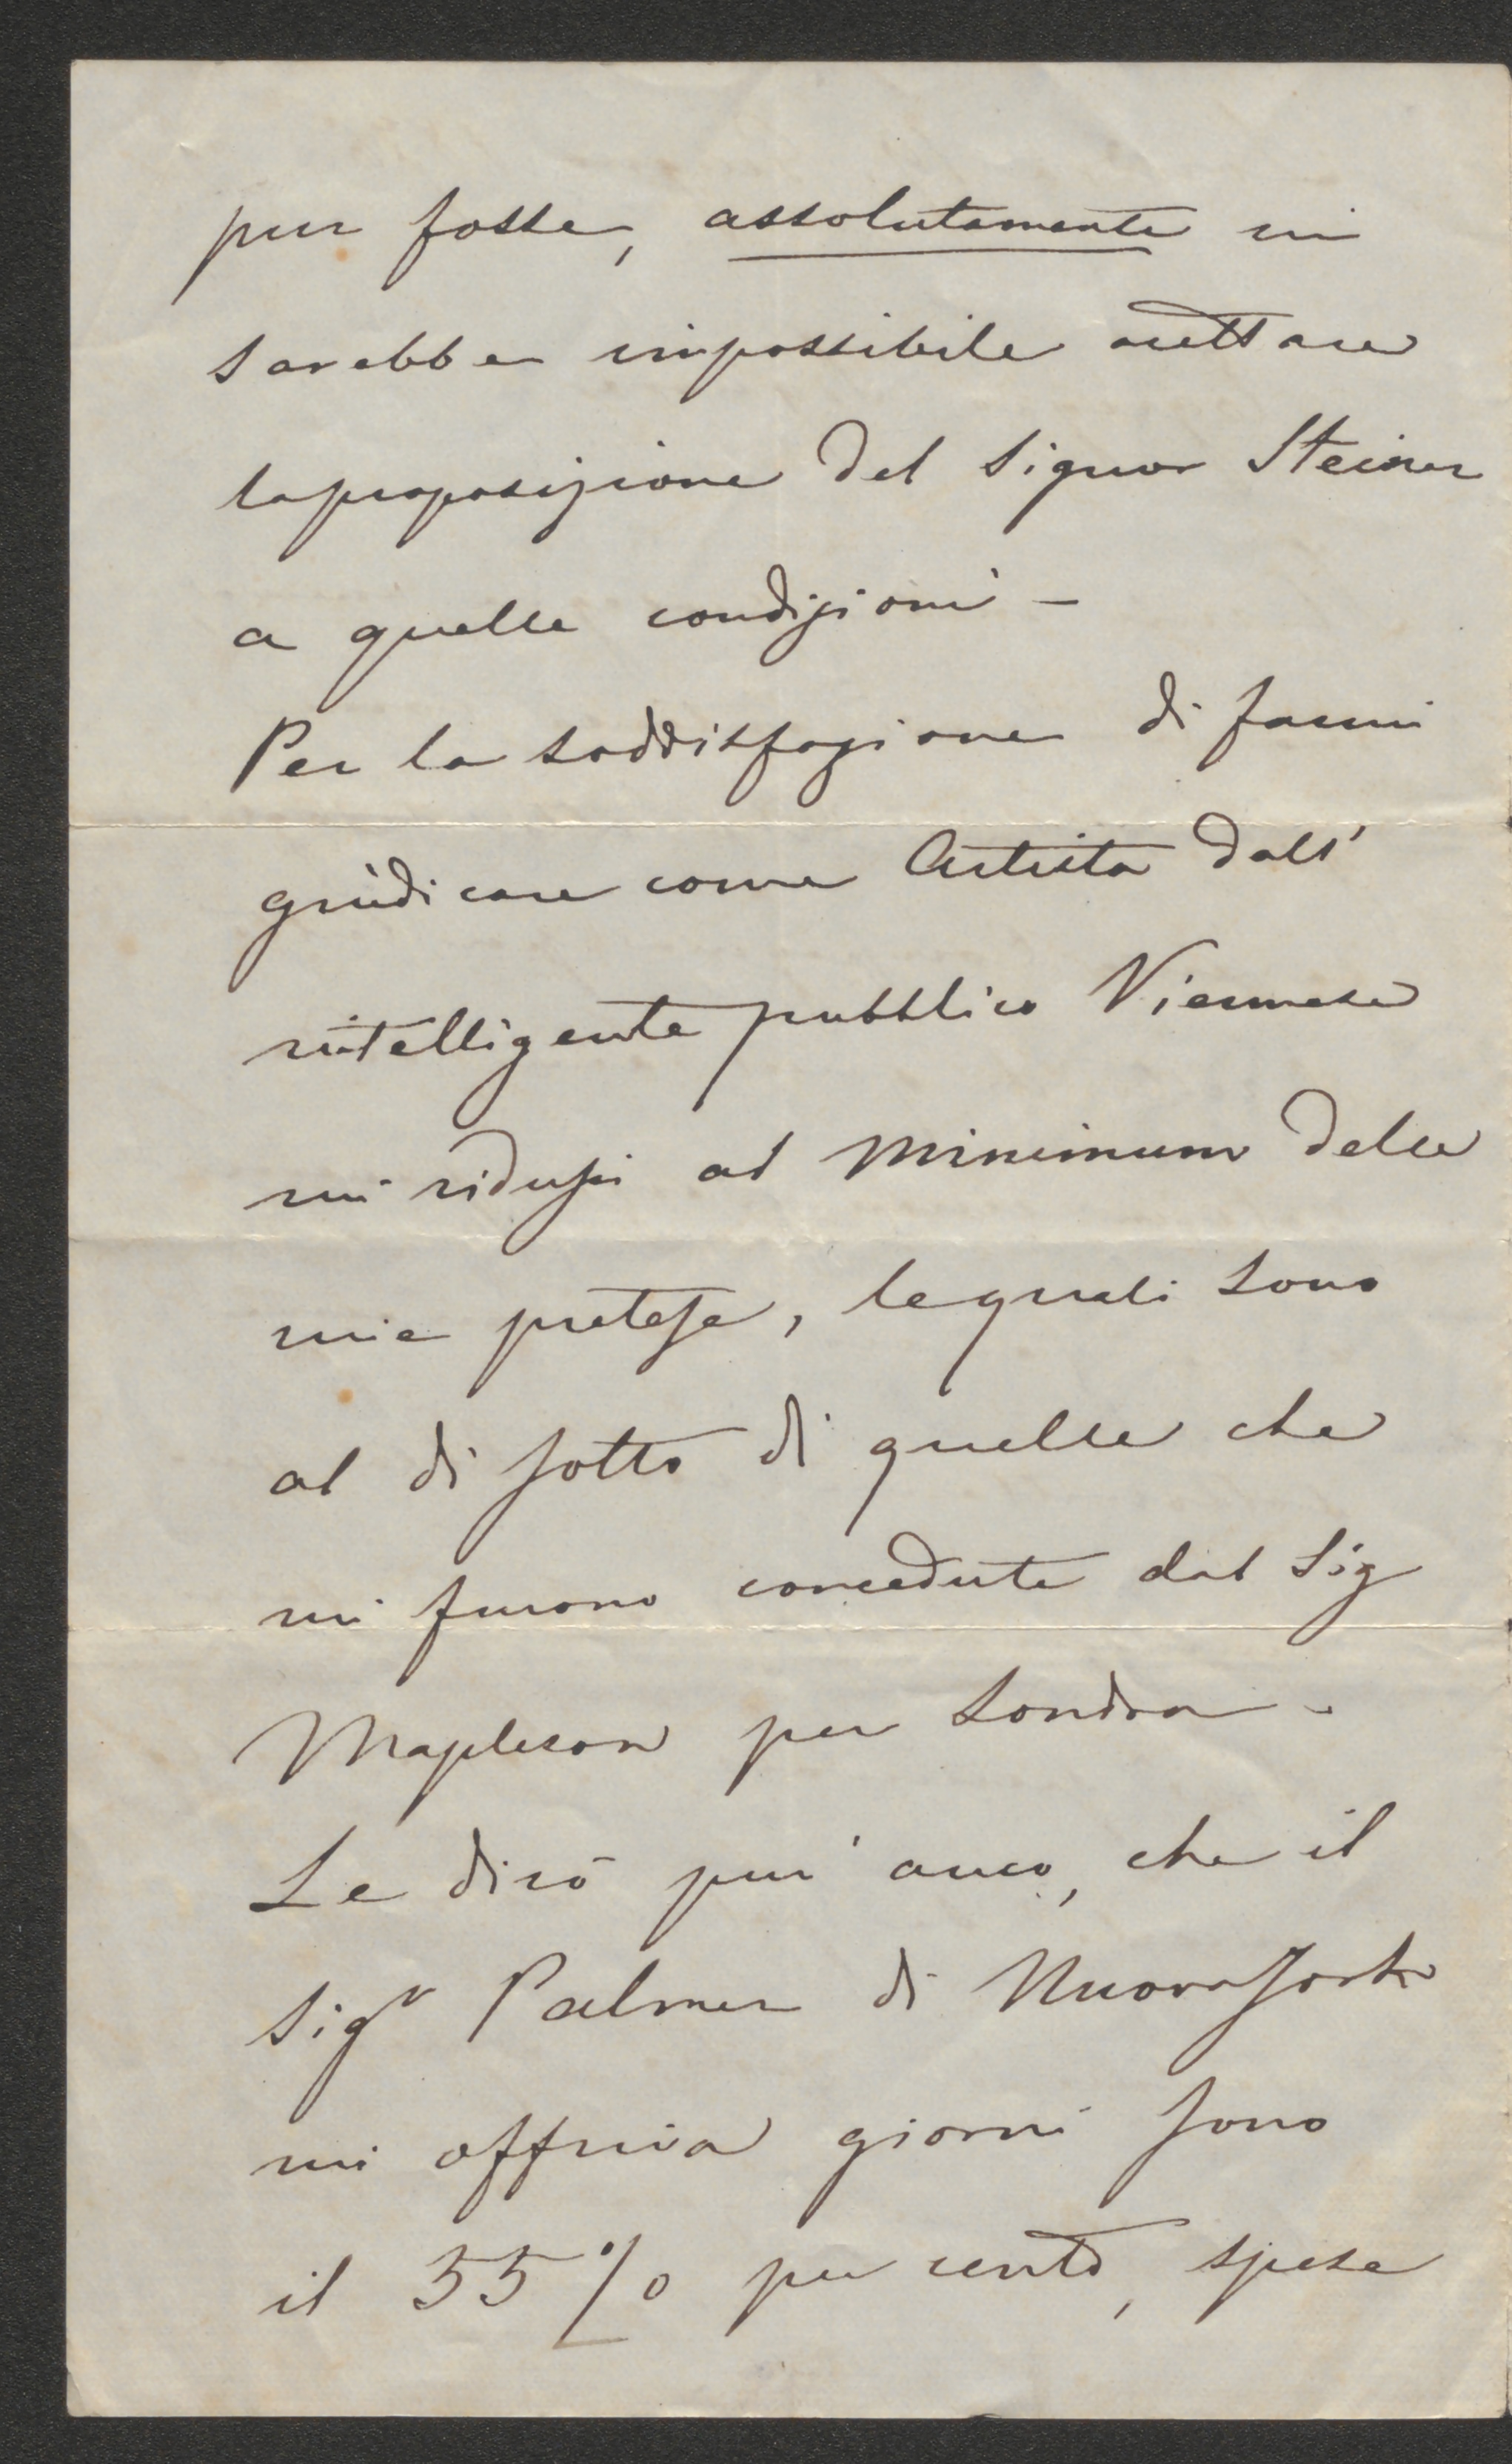 pur fosse, assolutamente mi
sarebbe impossibile accettare
la proposizione del Signor Steiner
a quelle condizioni –
Per la soddisfazione di farmi
giudicare come Artista dall'
intelligente pubblico Viennese
mi ridussi al minimum delle
mie pretese, le quali sono
al di sotto di quelle che
mi furono concedute dal Sig
Mapleson per Londra –
Le dirò pur' anco, che il
Sigr Palmer di Nuova Jork
mi offriva giorni sono
il 55 % per cento, spese